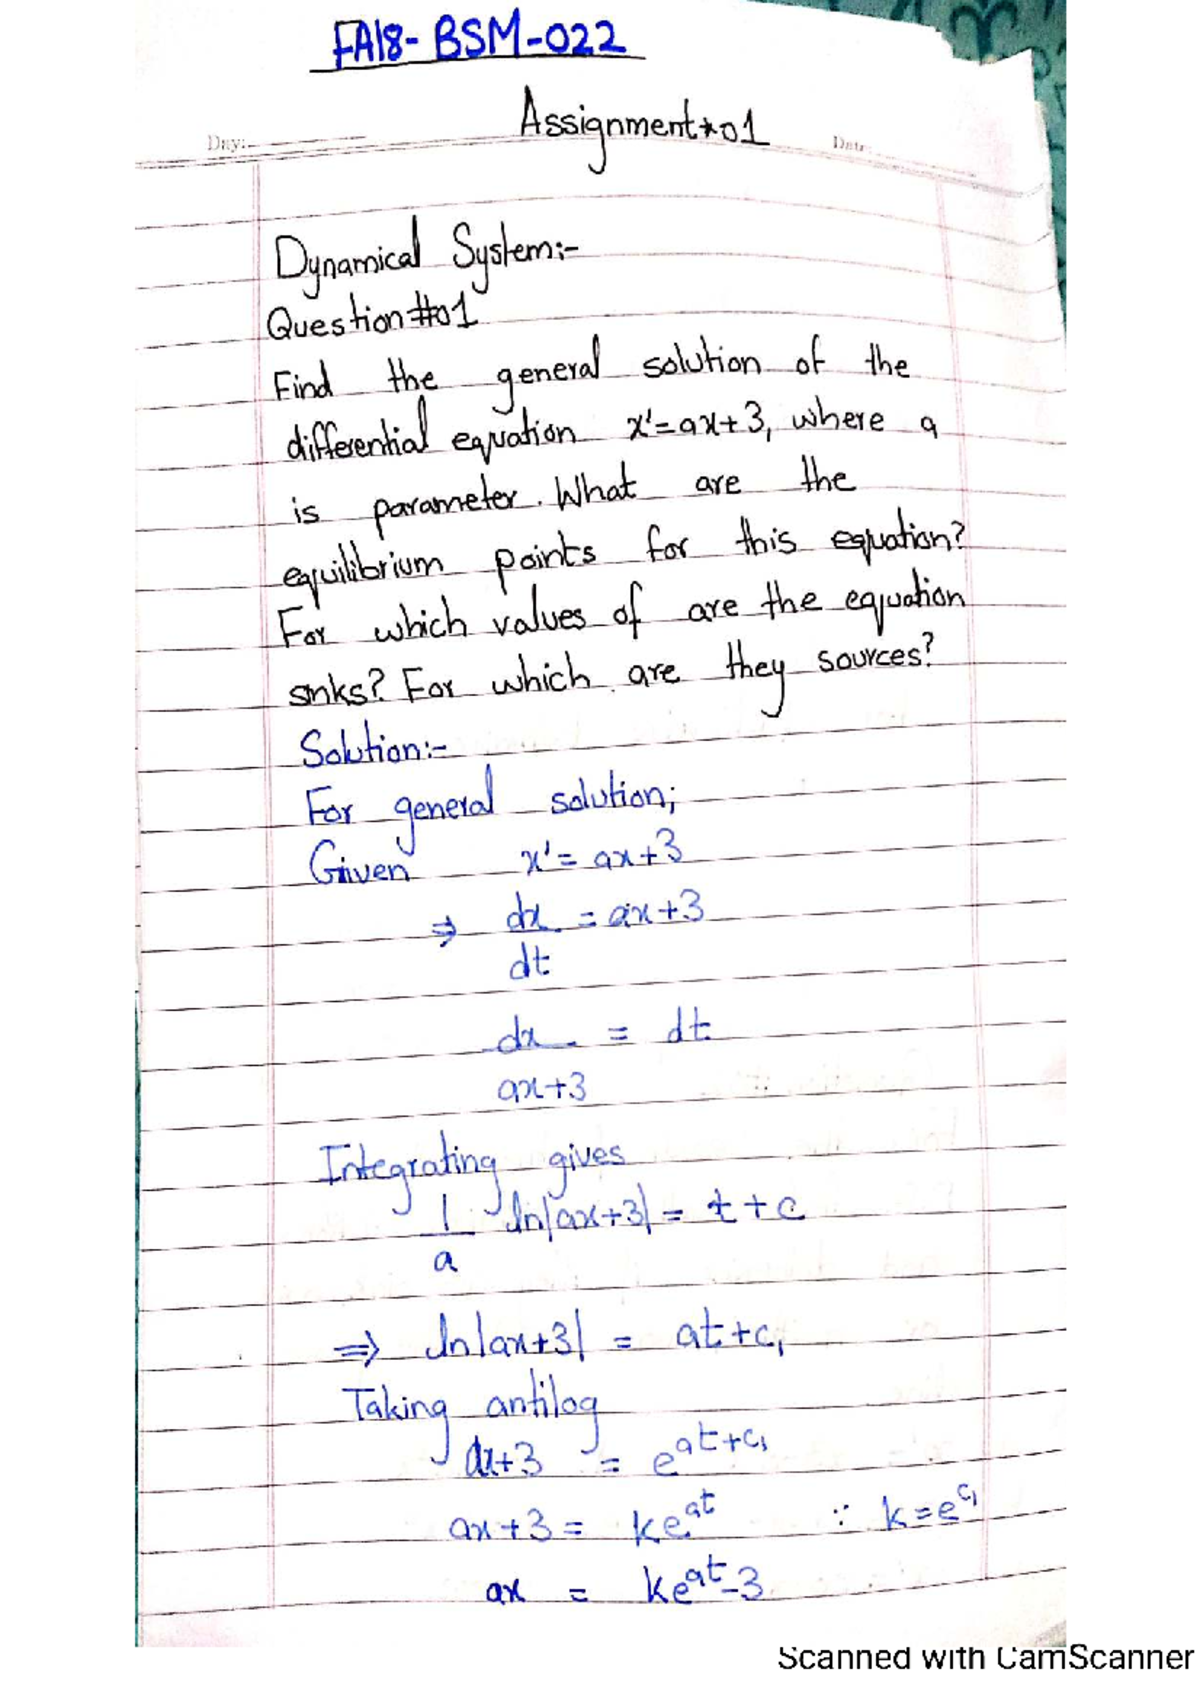 FA18-BSM-022
Assignment*01
Day: Date:
Dynamical System:-
Question#01
Find the general solution of the
differential equation x'=ax+3, where a
is parameter. What are the
equilibrium points for this equation?
For which values of are the equation
snks? For which are they sources?
Solution:-
For general solution;
Given x'= ax+3
⇒ dx = ax+3
dt
dx = dt
ax+3
Integrating gives
1 ln|ax+3| = t+c
a
⇒ ln|ax+3| = at+c₁
Taking antilog
ax+3 = e^at+c₁
ax+3 = ke^at ∵ k=e^c₁
ax = ke^at-3
Scanned with CamScanner